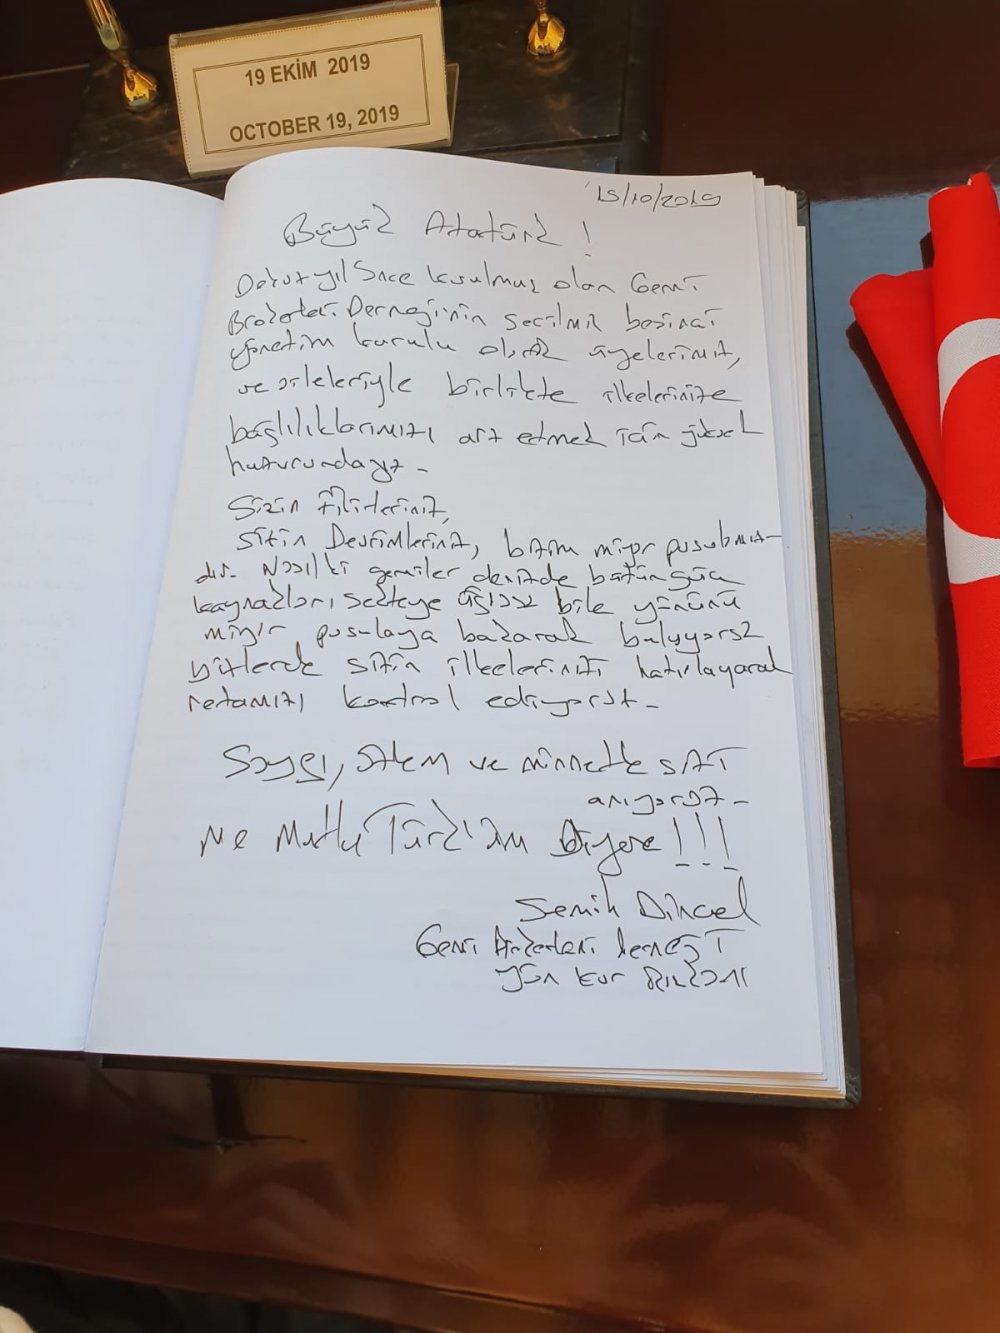 19 EKİM 2019
OCTOBER 19, 2019
19/10/2019
Büyük Atatürk !
Dokuz yıl önce kurulmuş olan Gemi
Brokerleri Derneğinin seçilmiş beşinci
yönetim kurulu olarak üyelerimiz,
ve aileleriyle birlikte ilkelerinize
bağlılıklarımızı arz etmek için yüksek
huzurundayız -
Sizin fikirleriniz,
Sizin Devrimleriniz, bizim miyar pusulamız-
dır. Nasıl ki gemiler denizde bütün güç
kaynakları sekteye uğrasa bile yönünü
miyar pusulaya bakarak buluyorsa
bizlerde sizin ilkelerinizi hatırlayarak
rotamızı kontrol ediyoruz -
Saygı, özlem ve minnetle sizi
anıyoruz -
Ne Mutlu Türk'üm Diyene !!!
Semih Dinçel
Gemi Brokerleri Derneği
Yön Kur Başkanı